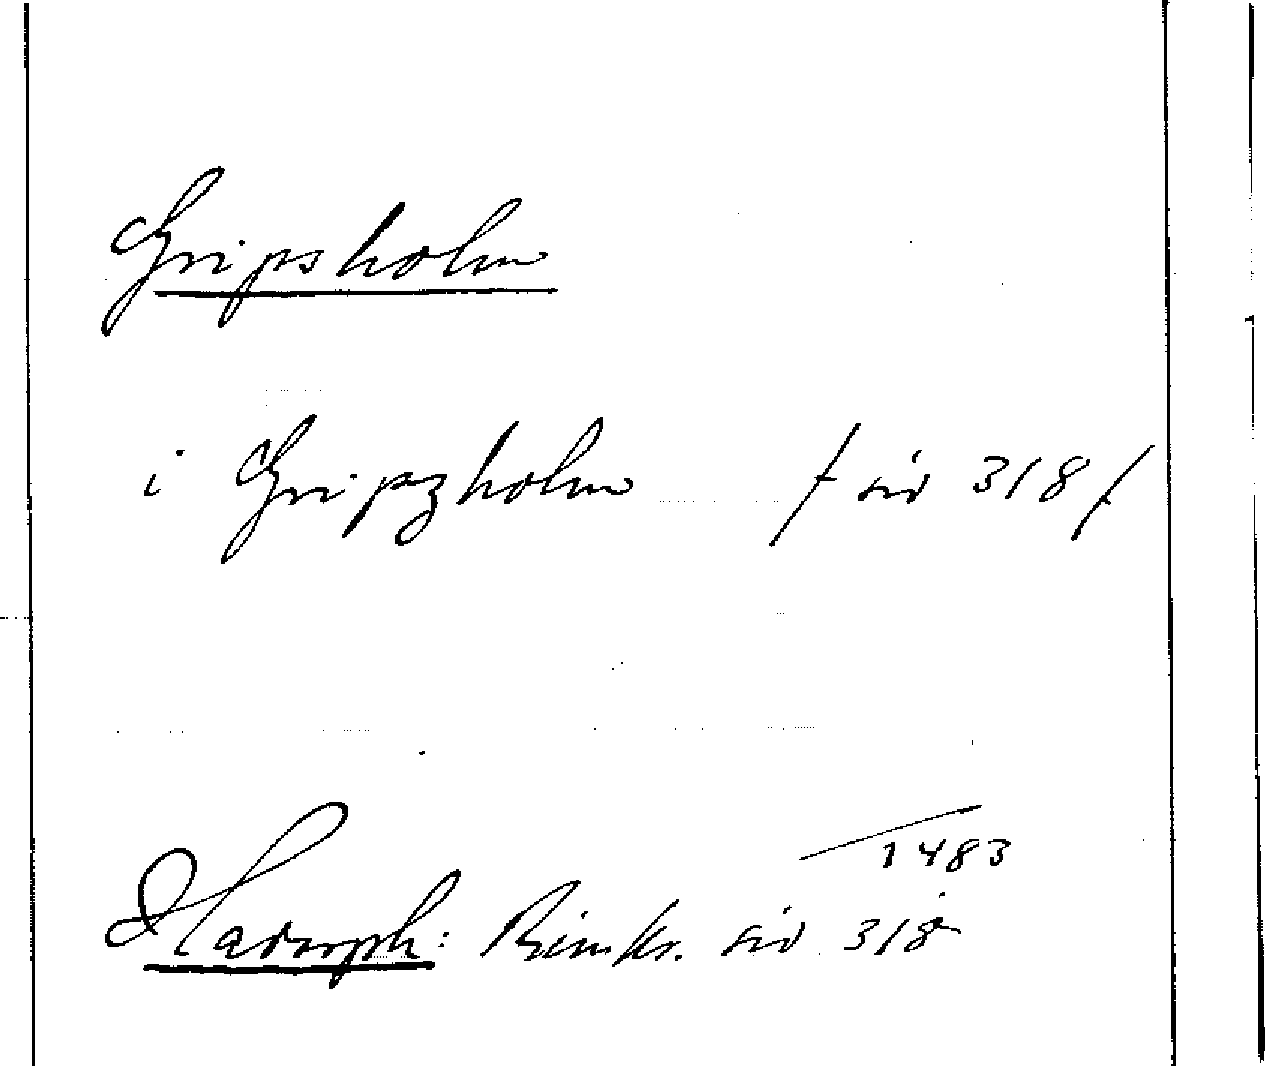 Gripsholm
i Gripzholm / sid 318 /
1483
Hadorph: Rimkr. sid 318